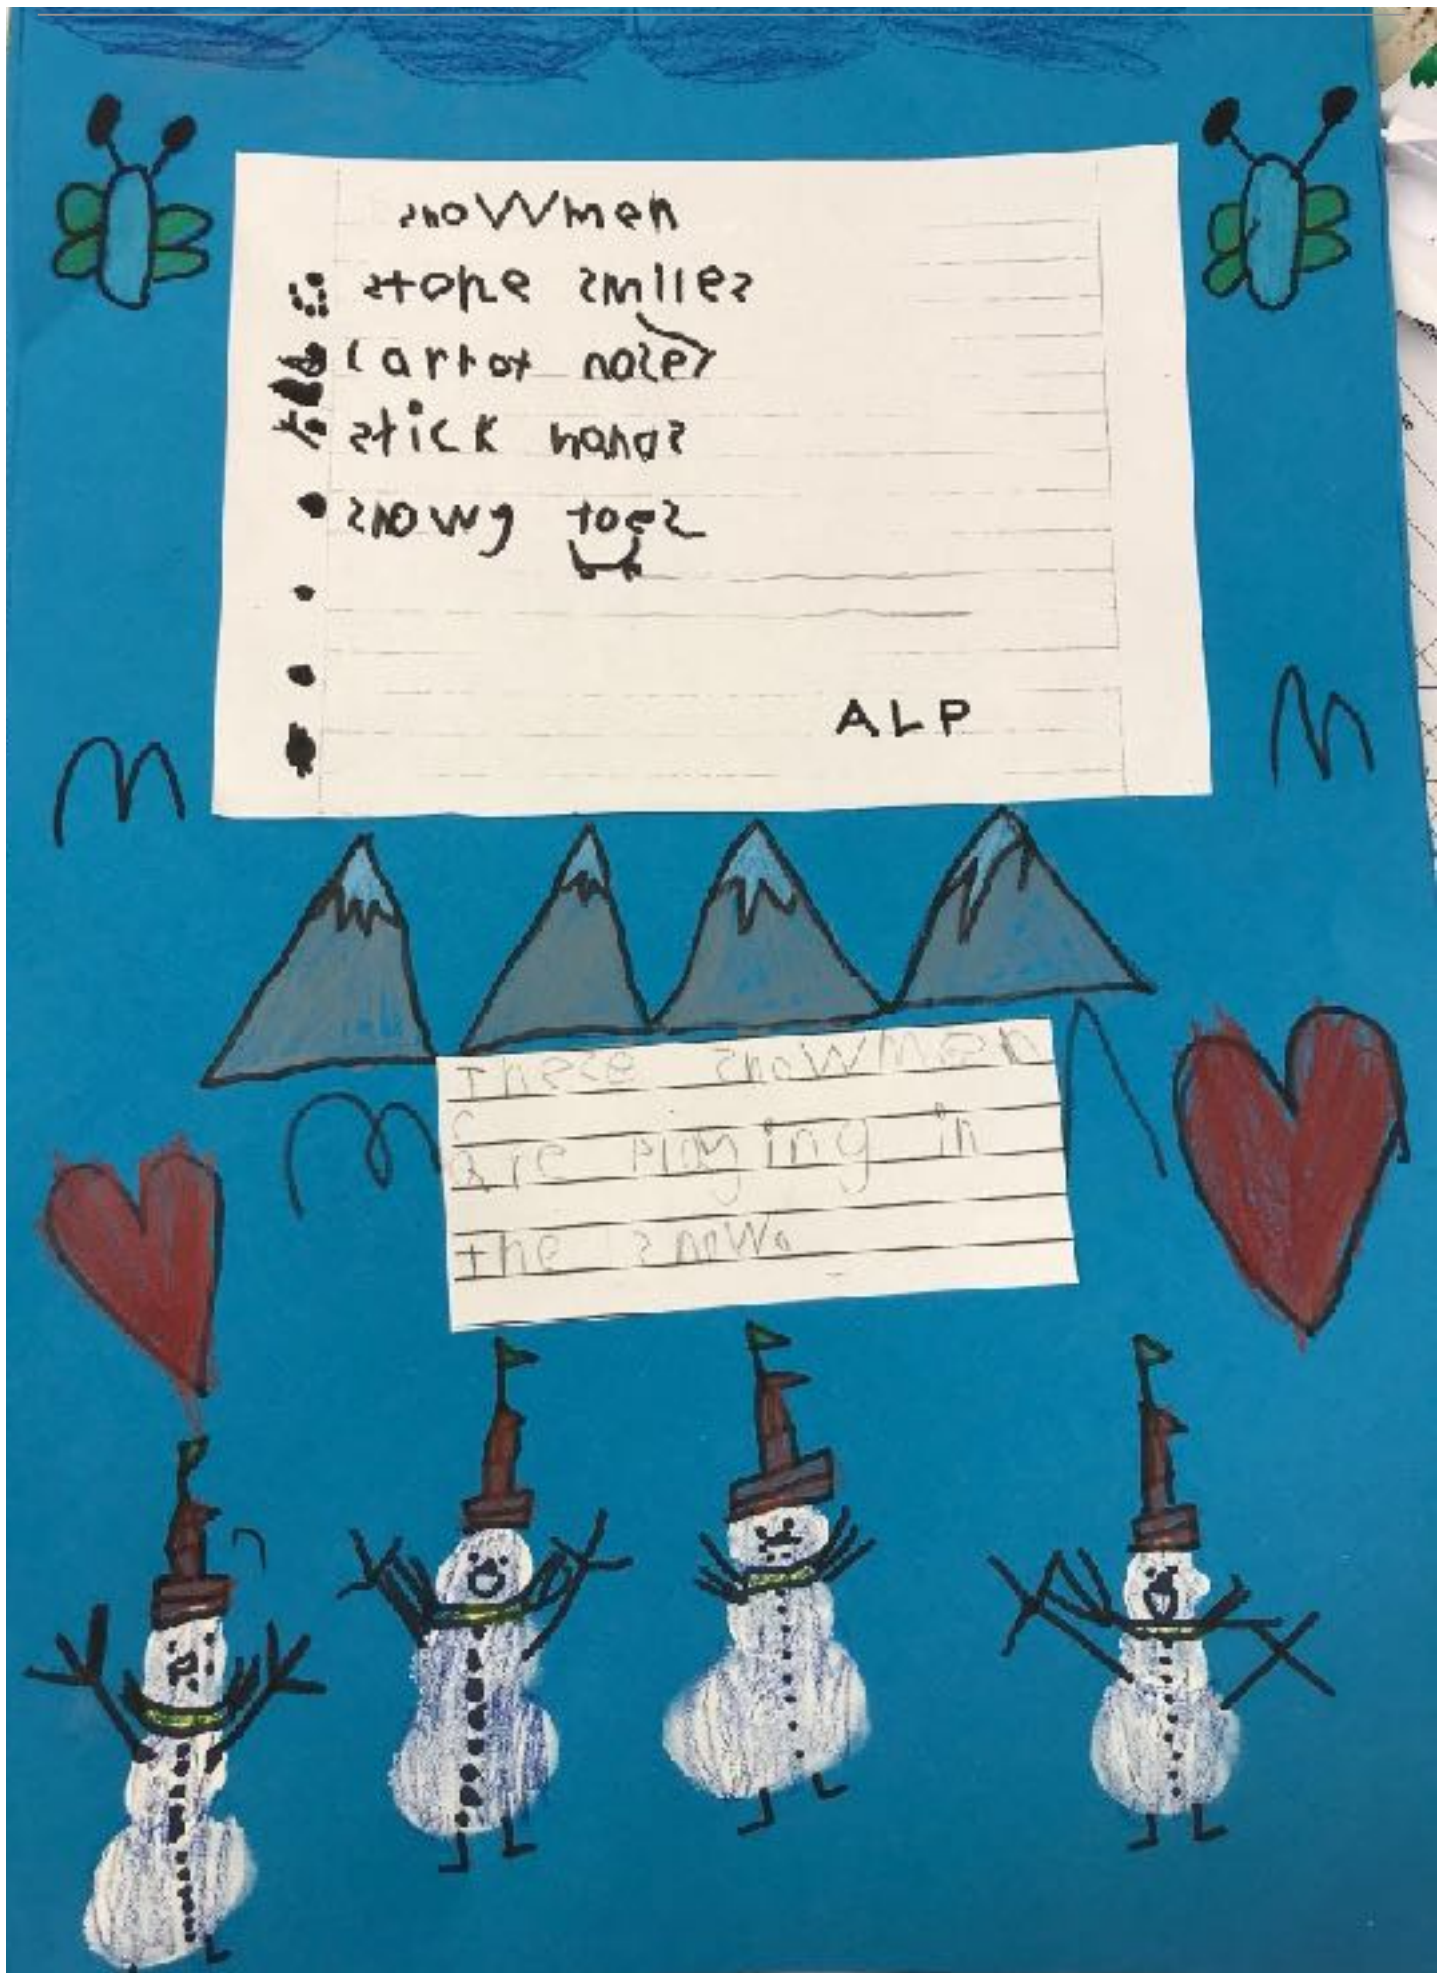 snoWmen
stone smiles
carrot noses
stick hands
snowy toes
ALP
These snowmen
are playing in
the snow.